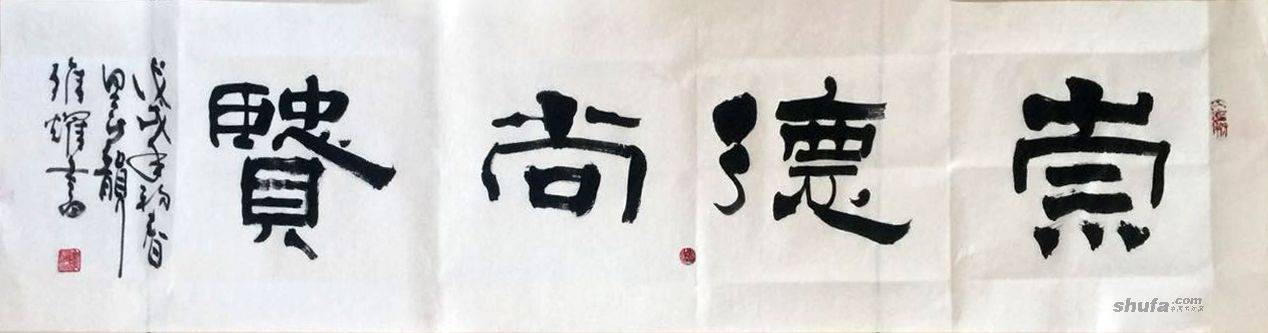 崇德尚賢
戊戌年初春
墨韻
維耀書
shufa.com